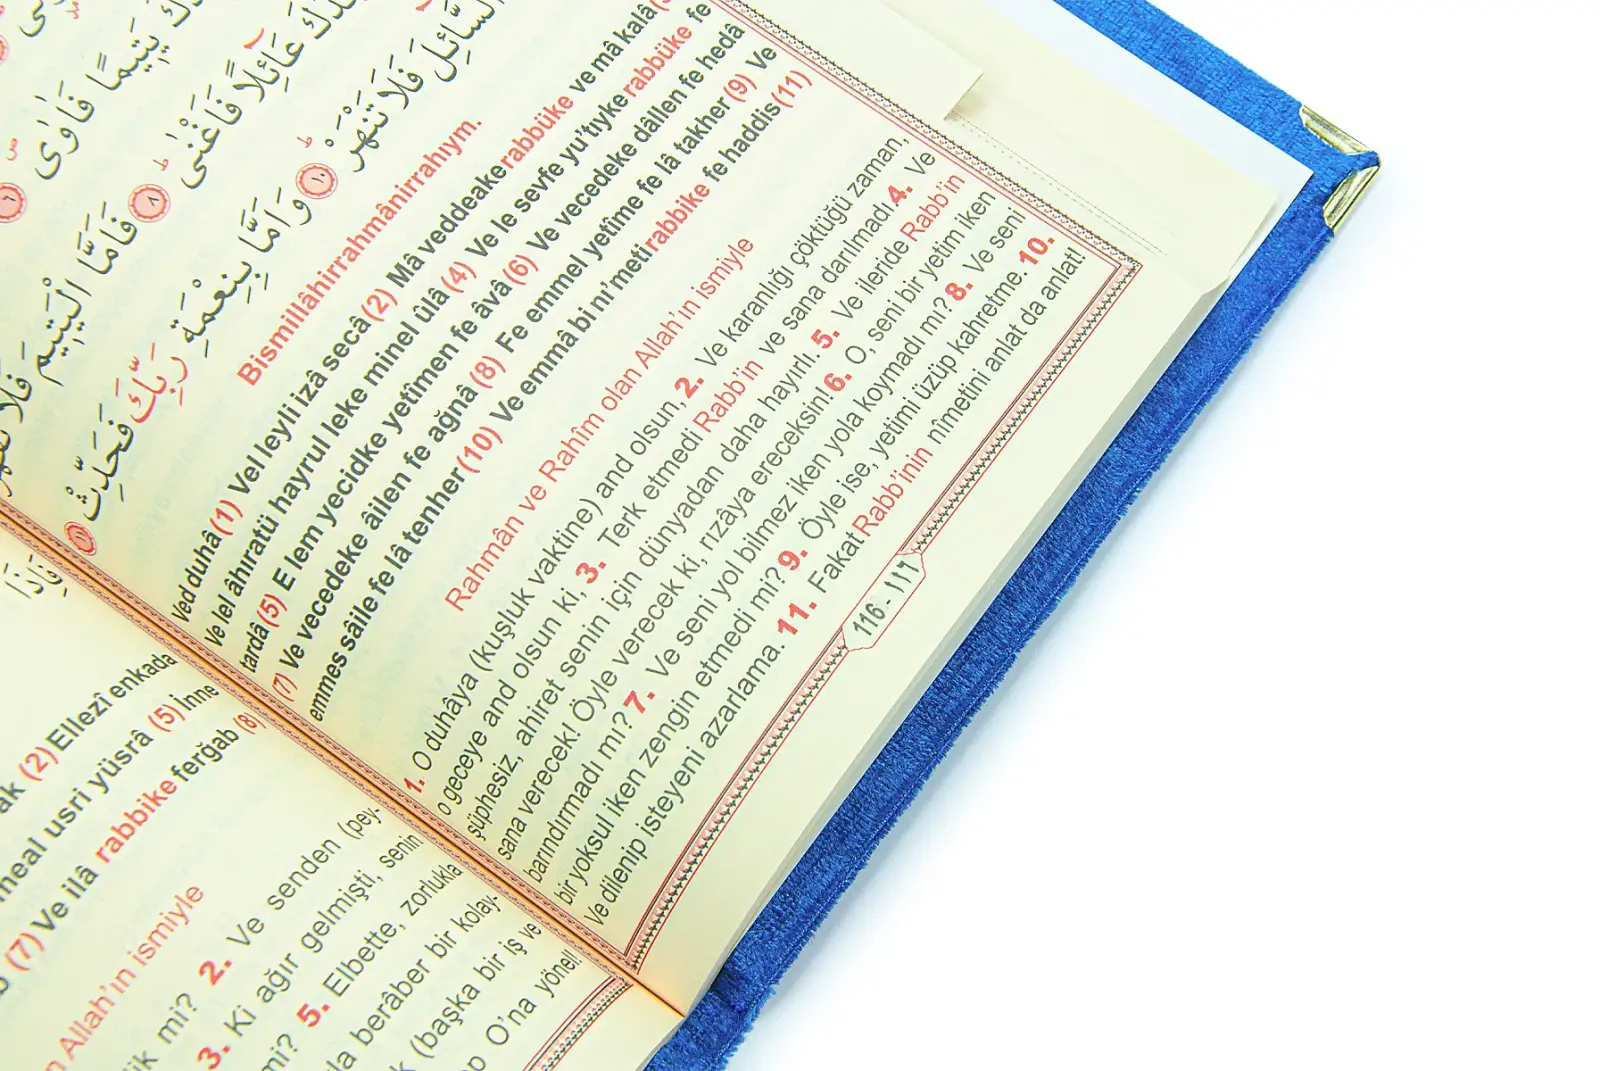 كَ يَتِيمًا فَاٰوٰى ٦
كَ عَائِلًا فَاَغْنٰى ٨ فَاَمَّا الْيَتِيمَ فَلَا تَقْهَرْ
السَّائِلَ فَلَا تَنْهَرْ ١٠ وَاَمَّا بِنِعْمَةِ رَبِّكَ فَحَدِّثْ ١١
Bismillâhirrahmânirrahıym.
Ved duhâ (1) Vel leyli izâ secâ (2) Mâ veddeake rabbüke ve mâ kalâ
Ve lel âhıratü hayrul leke minel ûlâ (4) Ve le sevfe yu'tıyke rabbüke fe
tardâ (5) E lem yecidke yetîmen fe âvâ (6) Ve vecedeke dâllen fe hedâ
(7) Ve vecedeke âilen fe ağnâ (8) Fe emmel yetîme fe lâ takher (9) Ve
emmes sâile fe lâ tenher (10) Ve emmâ bi ni'meti rabbike fe haddis (11)
Rahmân ve Rahîm olan Allah'ın ismiyle
1. O duhâya (kuşluk vaktine) and olsun, 2. Ve karanlığı çöktüğü zaman,
o geceye and olsun ki, 3. Terk etmedi Rabb'in ve sana darılmadı. 4. Ve
şüphesiz, ahiret senin için dünyadan daha hayırlı. 5. Ve ileride Rabb'in
sana verecek! Öyle verecek ki, rızâya ereceksin! 6. O, seni bir yetim iken
barındırmadı mı? 7. Ve seni yol bilmez iken yola koymadı mı? 8. Ve seni
bir yoksul iken zengin etmedi mi? 9. Öyle ise, yetimi üzüp kahretme. 10.
Ve dilenip isteyeni azarlama. 11. Fakat Rabb'inin nîmetini anlat da anlat!
116 - ١١٦
فَاِذَا
(2) Ellezî enkada
usri yüsrâ (5) İnne
(7) Ve ilâ rabbike ferğab (8)
Allah'ın ismiyle
mi? 2. Ve senden (pey-
3. Ki ağır gelmişti, senin
mi? 5. Elbette, zorlukla
berâber bir kolay-
(başka bir iş ve
O'na yönel!